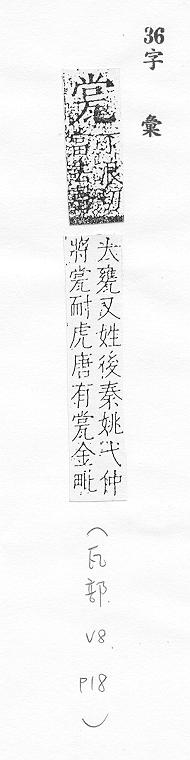 36字 彙
瓽
丁浪切
當去聲
大甕又姓後秦姚弋仲
將瓽耐虎唐有瓽金毗
(瓦部 V8. P18)